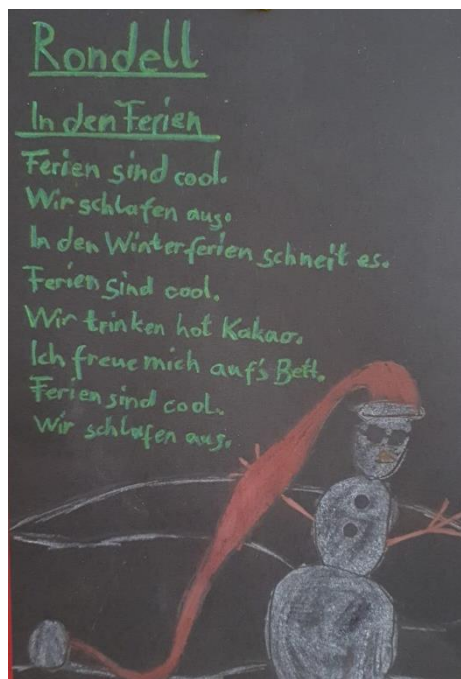 Rondell
In den Ferien
Ferien sind cool.
Wir schlafen aus.
In den Winterferien schneit es.
Ferien sind cool.
Wir trinken hot Kakao.
Ich freue mich auf's Bett.
Ferien sind cool.
Wir schlafen aus.